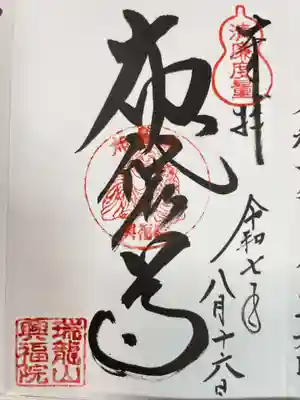 奉拝
清廉度量
布袋尊
令和七年
八月十六日
瑞龍山
興福院